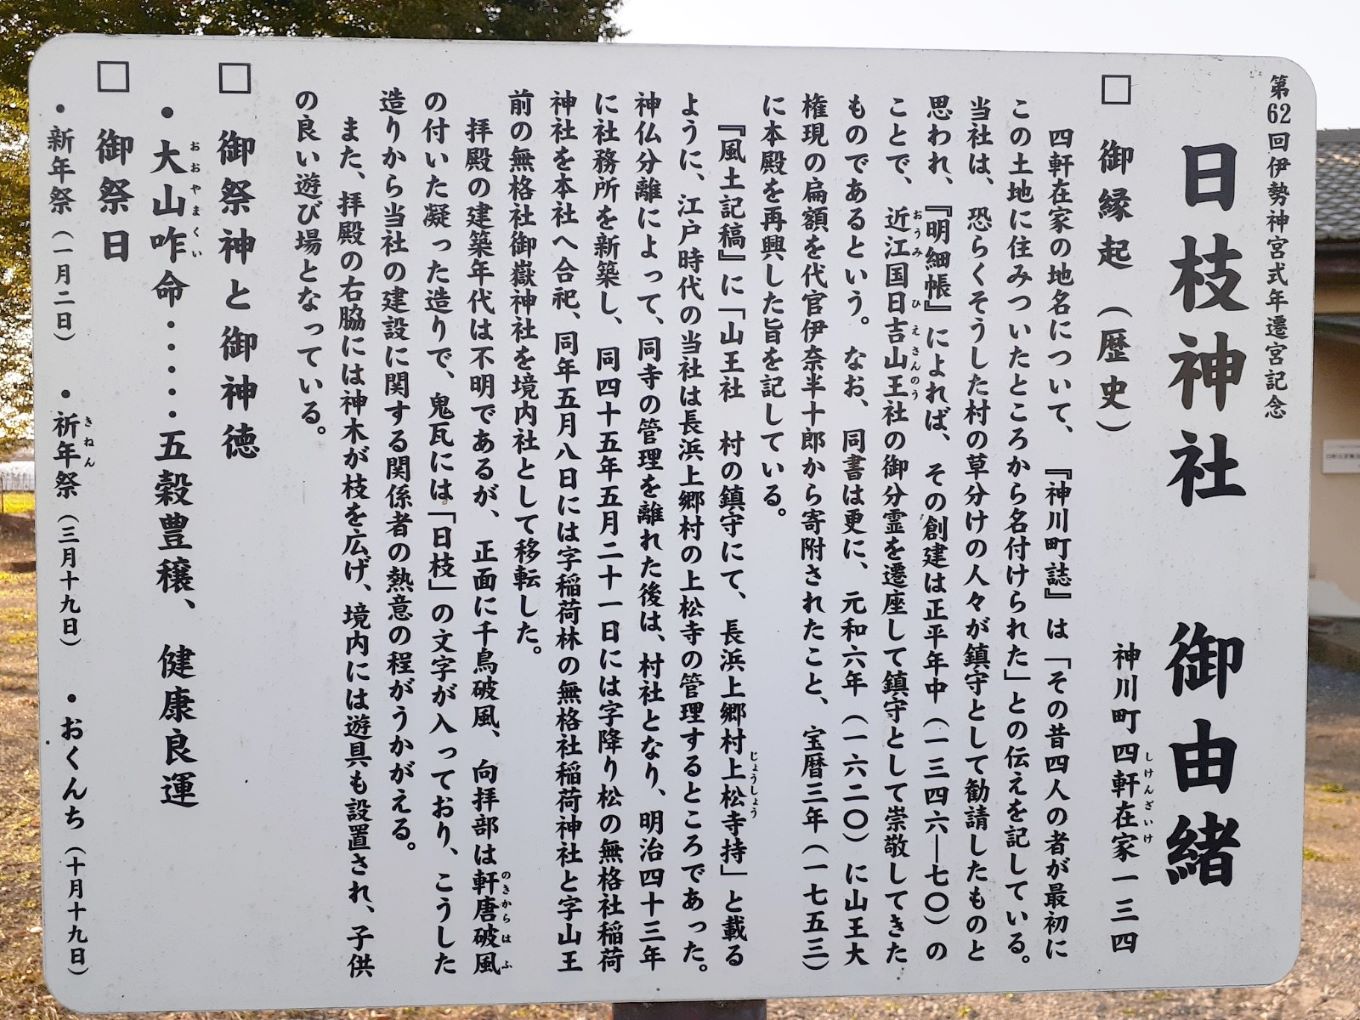 第62回伊勢神宮式年遷宮記念
日枝神社 御由緒
神川町四軒在家一三四
しけんざいけ
□ 御縁起（歴史）
四軒在家の地名について、『神川町誌』は「その昔四人の者が最初に
この土地に住みついたところから名付けられた」との伝えを記している。
当社は、恐らくそうした村の草分けの人々が鎮守として勧請したものと
思われ、『明細帳』によれば、その創建は正平年中（一三四六―七〇）の
ことで、近江国日吉山王社の御分霊を遷座して鎮守として崇敬してきた
おうみ ひえさんのう
ものであるという。なお、同書は更に、元和六年（一六二〇）に山王大
権現の扁額を代官伊奈半十郎から寄附されたこと、宝暦三年（一七五三）
に本殿を再興した旨を記している。
『風土記稿』に「山王社 村の鎮守にて、長浜上郷村上松寺持」と載る
じょうしょう
ように、江戸時代の当社は長浜上郷村の上松寺の管理するところであった。
神仏分離によって、同寺の管理を離れた後は、村社となり、明治四十三年
に社務所を新築し、同四十五年五月二十一日には字降り松の無格社稲荷
神社を本社へ合祀、同年五月八日には字稲荷林の無格社稲荷神社と字山王
前の無格社御嶽神社を境内社として移転した。
拝殿の建築年代は不明であるが、正面に千鳥破風、向拝部は軒唐破風
のきからはふ
の付いた凝った造りで、鬼瓦には「日枝」の文字が入っており、こうした
造りから当社の建設に関する関係者の熱意の程がうかがえる。
また、拝殿の右脇には神木が枝を広げ、境内には遊具も設置され、子供
の良い遊び場となっている。
□ 御祭神と御神徳
・大山咋命・・・・・五穀豊穣、健康良運
おおやまくい
□ 御祭日
・新年祭（一月二日） ・祈年祭（三月十九日） ・おくんち（十月十九日）
きねん